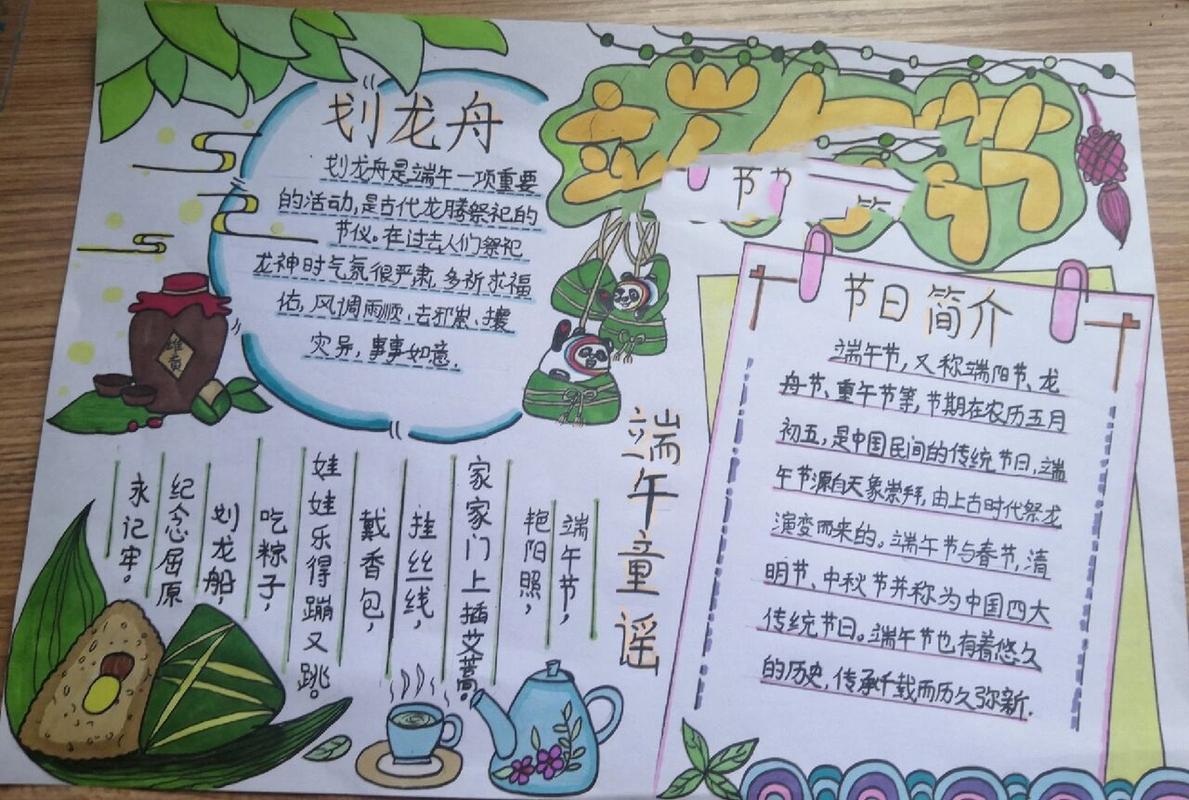 划龙舟
划龙舟是端午一项重要
的活动,是古代龙腾祭祀的
节仪。在过去人们祭祀
龙神时气氛很严肃,多祈求福
佑,风调雨顺,去邪祟、攘
灾异,事事如意.
端午节
节日简介
端午节,又称端阳节、龙
舟节、重午节等,节期在农历五月
初五,是中国民间的传统节日,端
午节源自天象崇拜,由上古时代祭龙
演变而来的。端午节与春节,清
明节、中秋节并称为中国四大
传统节日。端午节也有着悠久
的历史,传承千载而历久弥新.
雄黄
端午童谣
端午节,
艳阳照,
家家门上插艾蒿。
挂丝线,
戴香包,
娃娃乐得蹦又跳。
吃粽子,
划龙船,
纪念屈原
永记牢。